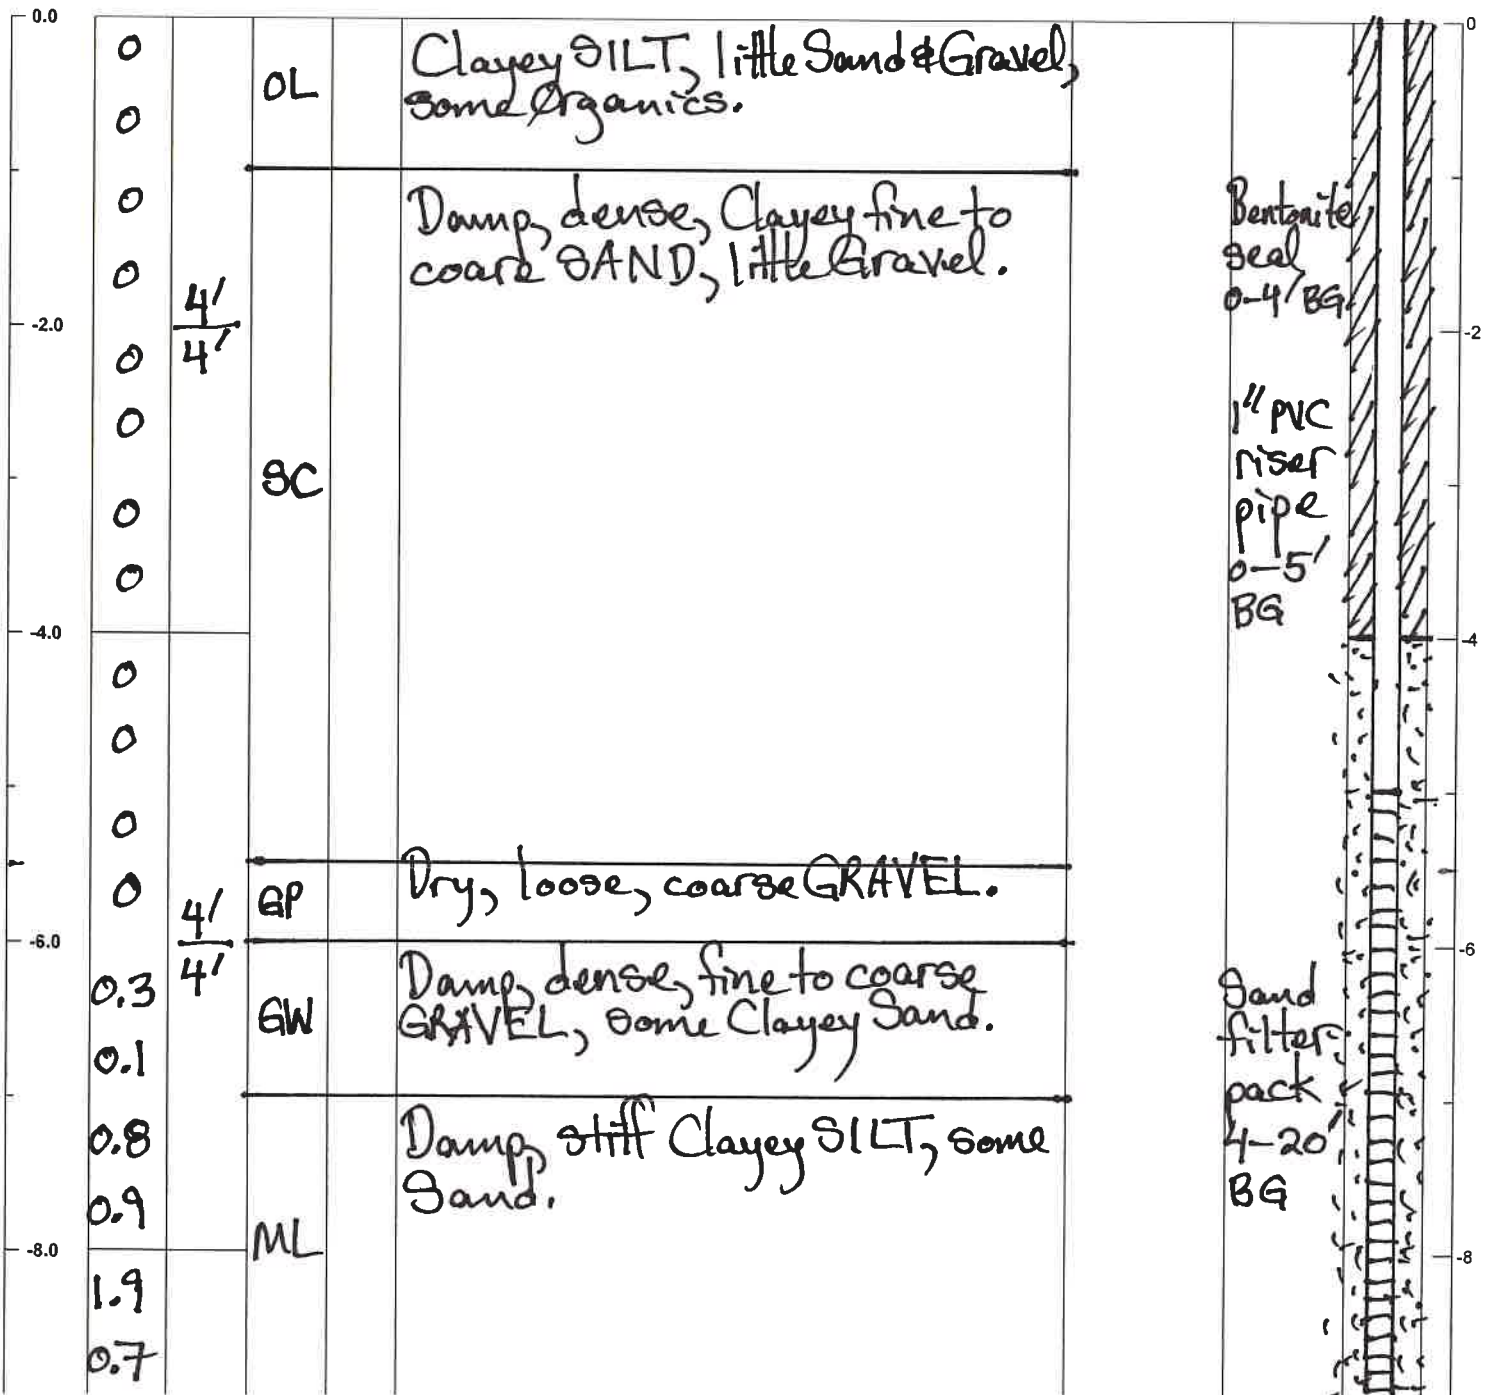 0.0
0
0
0
0
0
-2.0
0
0
0
0
-4.0
0
0
0
0
-6.0
0.3
0.1
0.8
0.9
-8.0
1.9
0.7
4'
4'
4'
4'
OL
SC
GP
GW
ML
Clayey SILT, little Sand & Gravel,
some Organics.
Damp, dense, Clayey fine to
coarse SAND, little Gravel.
Dry, loose, coarse GRAVEL.
Damp, dense, fine to coarse
GRAVEL, some Clayey Sand.
Damp, stiff Clayey SILT, some
Sand.
Bentonite
seal
0-4' BG
1" PVC
riser
pipe
0-5'
BG
Sand
filter
pack
4-20'
BG
0
-2
-4
-6
-8